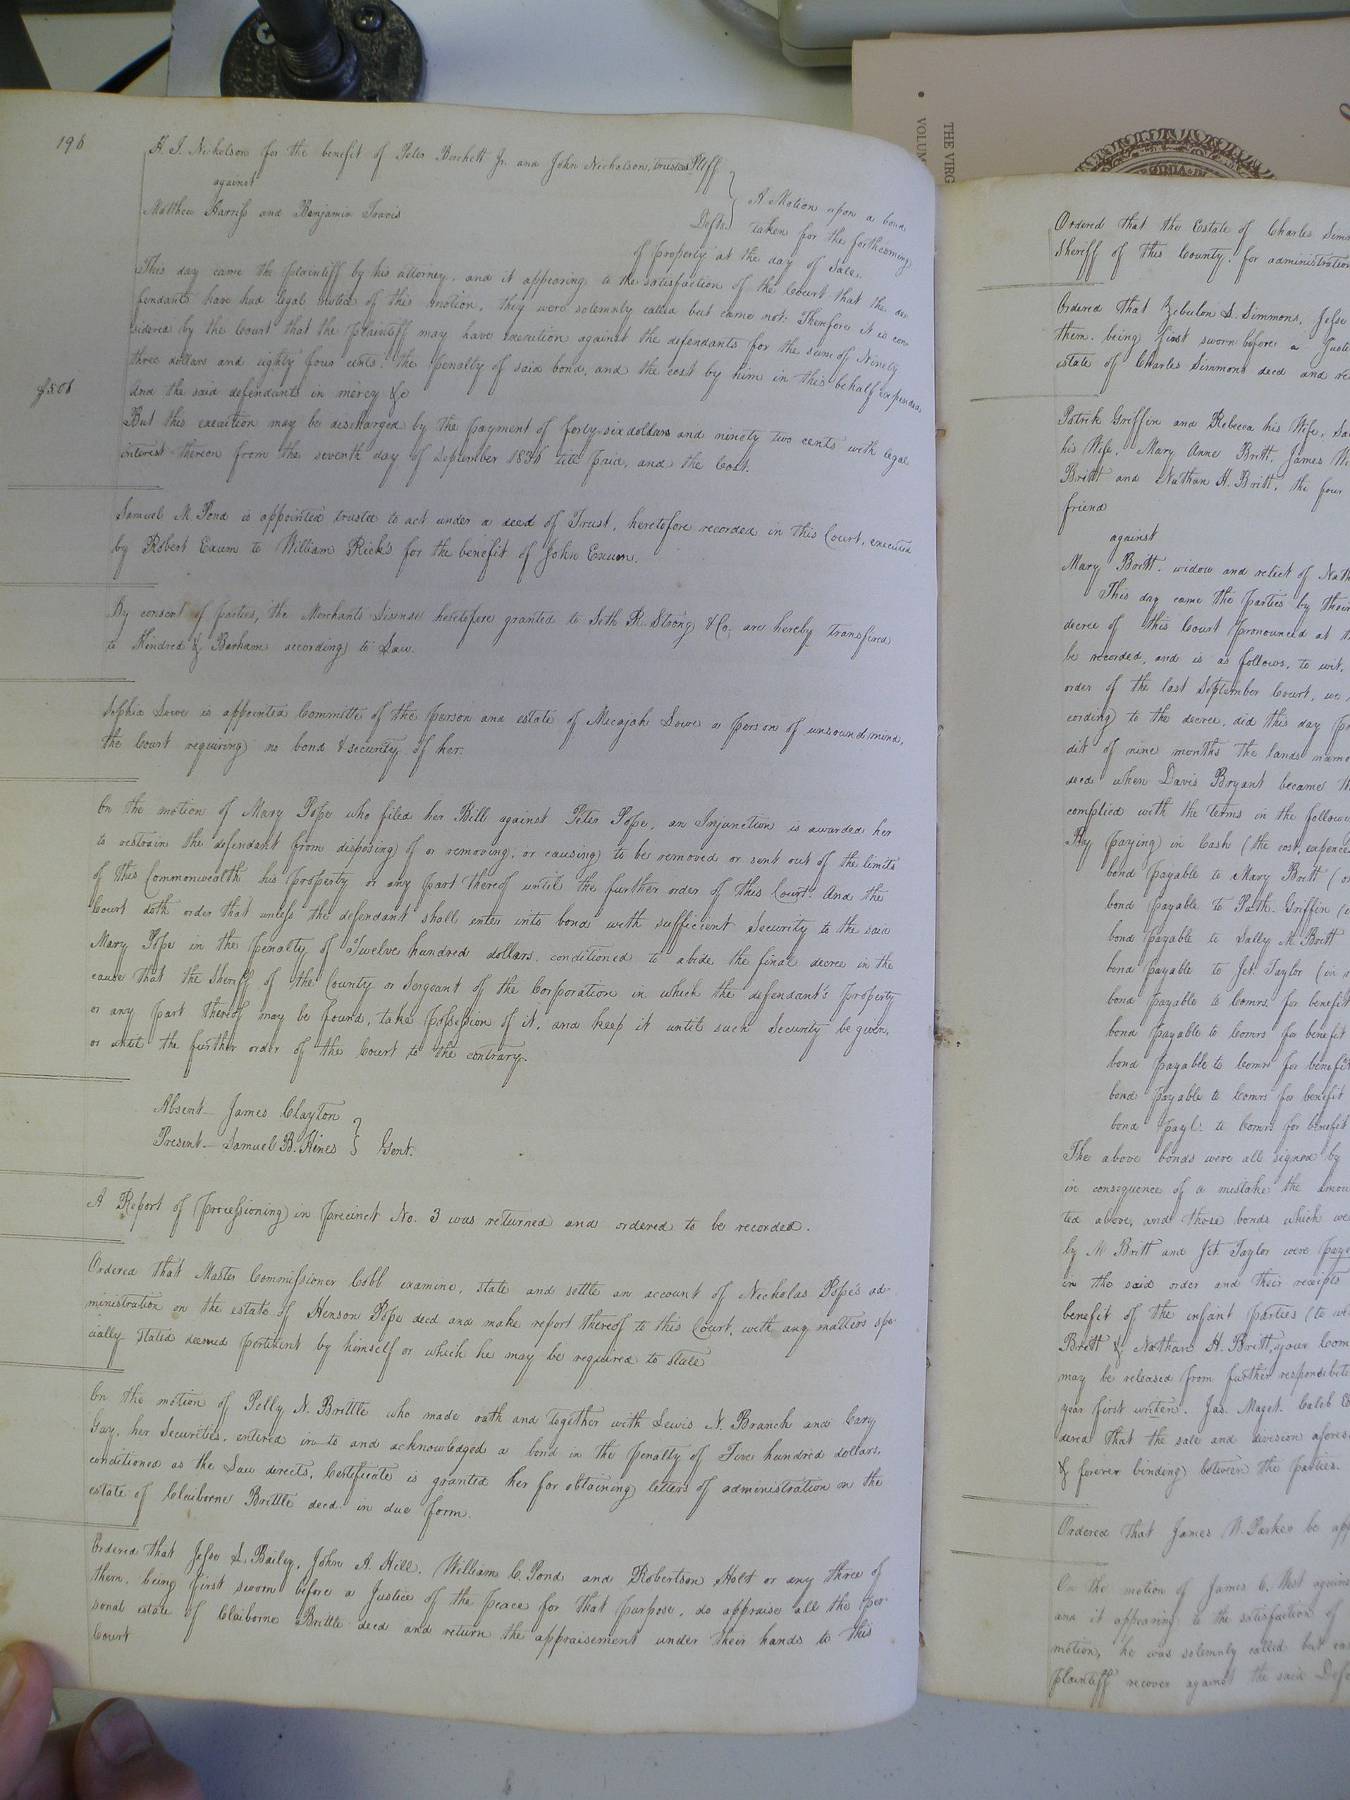 196
H. J. Nicholson for the benefit of Peter Burchett Jr. and John Nicholson, trustees Pltff
against
Matthew Harriss and Benjamin Travis Defts
A Motion upon a bond
taken for the forthcoming
of property at the day of Sale.
This day came the plaintiff by his attorney, and it appearing to the satisfaction of the Court that the de
fendants have had legal notice of this motion, they were solemnly called but came not: Therefore it is con
sidered by the Court that the plaintiff may have execution against the defendants for the sum of Ninety
three dollars and eighty four cents, the penalty of said bond, and the cost by him in this behalf expended
And the said defendants in mercy &c
But this execution may be discharged by the payment of forty-six dollars and ninety two cents with legal
interest thereon from the seventh day of September 1836 till paid, and the Cost.
Samuel M. Pond is appointed trustee to act under a deed of Trust, heretofore recorded in this Court, executed
by Robert Exum to William Ricks for the benefit of John Exum.
By consent of parties, the Merchants Lisense heretofore granted to Seth R. Strong & Co. are hereby transfered
to Kindred & Barham according to Law.
Sophia Lowe is appointed Committe of the person and estate of Micajah Lowe a person of unsound mind,
the Court requiring no bond & security of her.
On the motion of Mary Pope who filed her Bill against Peter Pope, an Injunction is awarded her
to restrain the defendant from disposing of or removing, or causing to be removed or sent out of the limits
of this Commonwealth his property or any part thereof until the further order of this Court. And the
Court doth order that unless the defendant shall enter into bond with sufficient Security to the said
Mary Pope in the penalty of Twelve hundred dollars, conditioned to abide the final decree in the
cause that the Sheriff of the County or Sergeant of the Corporation in which the defendant's property
or any part thereof may be found, take possession of it, and keep it until such Security be given,
or until the further order of the Court to the contrary.
Absent - James Clayton
Present - Samuel B. Hines Gent.
A Report of Processioning in precinct No. 3 was returned and ordered to be recorded.
Ordered that Master Commissioner Cobb examine, state and settle an account of Nickolas Pope's ad-
ministration on the estate of Henson Pope decd and make report thereof to this Court, with any matters spe-
cially stated deemed pertinent by himself or which he may be required to state
On the motion of Polly N. Brittle who made oath and together with Lewis N. Branch and Cary
Gay, her Securities, entered into and acknowledged a bond in the penalty of Five hundred dollars,
conditioned as the Law directs, Certificate is granted her for obtaining letters of administration on the
estate of Claiborne Brittle decd in due form.
Ordered that Jesse L. Bailey, John A. Hill, William C. Pond and Robertson Holt or any three of
them, being first sworn before a Justice of the peace for that purpose, do appraise all the per-
sonal estate of Claiborne Brittle decd and return the appraisement under their hands to this
Court
THE VIRG
VOLUM
Ordered that the Estate of Charles Simm
Sheriff of this County, for administration
Ordered that Zebulon S. Simmons, Jesse
them, being first sworn before a Justi
estate of Charles Simmons decd and re
Patrick Griffin and Rebecca his Wife,
his Wife, Mary Anne Britt, James
Britt and Nathan H. Britt, the four
friend
against
Mary Britt, widow and relict of Nath
This day came the parties by their
decree of this Court pronounced at th
be recorded, and is as follows, to wit.
order of the last September Court, we
cording to the decree, did this day
dit of nine months the lands name
decd when Davis Bryant became th
complied with the terms in the followi
By paying in Cash (the cost, expence
bond payable to Mary Britt
bond payable to Path. Griffin
bond payable to Sally M. Britt
bond payable to Jet. Taylor (in
bond payable to Comrs. for benefit
bond payable to Comrs for benefit
bond payable to Comrs for benefit
bond payable to Comrs for benefit
bond payl. to Comrs for benefit
The above bonds were all signed by
in consequence of a mistake the amou
ted above, and those bonds which we
by M Britt and Jet. Taylor were paya
in the said order and their receipts
benefit of the infant parties (to wi
Britt & Nathan H. Britt, your Com
may be released from further responsibili
year first writen. Jas. Maget. Caleb
dered that the sale and division afores
& forever binding between the parties.
Ordered that James W. Parker be app
On the motion of James C. West agains
and it appearing to the satisfaction of
motion, he was solemnly called but ca
plaintiff recover against the said Def